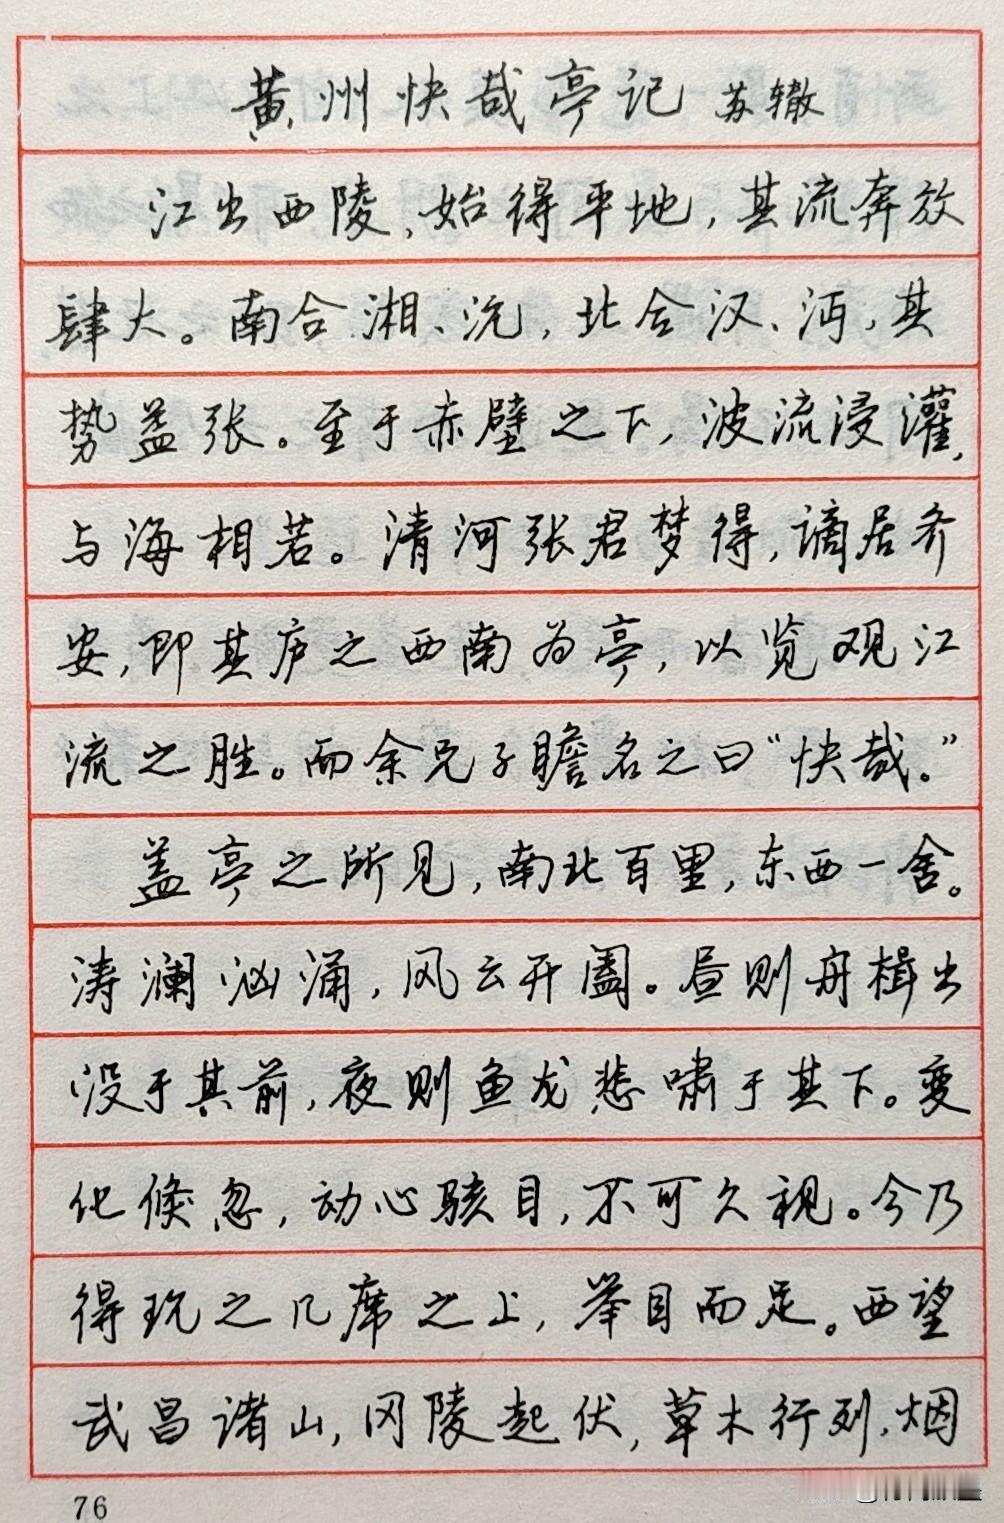 黄州快哉亭记 苏辙
江出西陵,始得平地,其流奔放
肆大。南合湘、沅,北合汉、沔,其
势益张。至于赤壁之下,波流浸灌,
与海相若。清河张君梦得,谪居齐
安,即其庐之西南为亭,以览观江
流之胜。而余兄子瞻名之曰“快哉。”
盖亭之所见,南北百里,东西一舍。
涛澜汹涌,风云开阖。昼则舟楫出
没于其前,夜则鱼龙悲啸于其下。变
化倏忽,动心骇目,不可久视。今乃
得玩之几席之上,举目而足。西望
武昌诸山,冈陵起伏,草木行列,烟
76